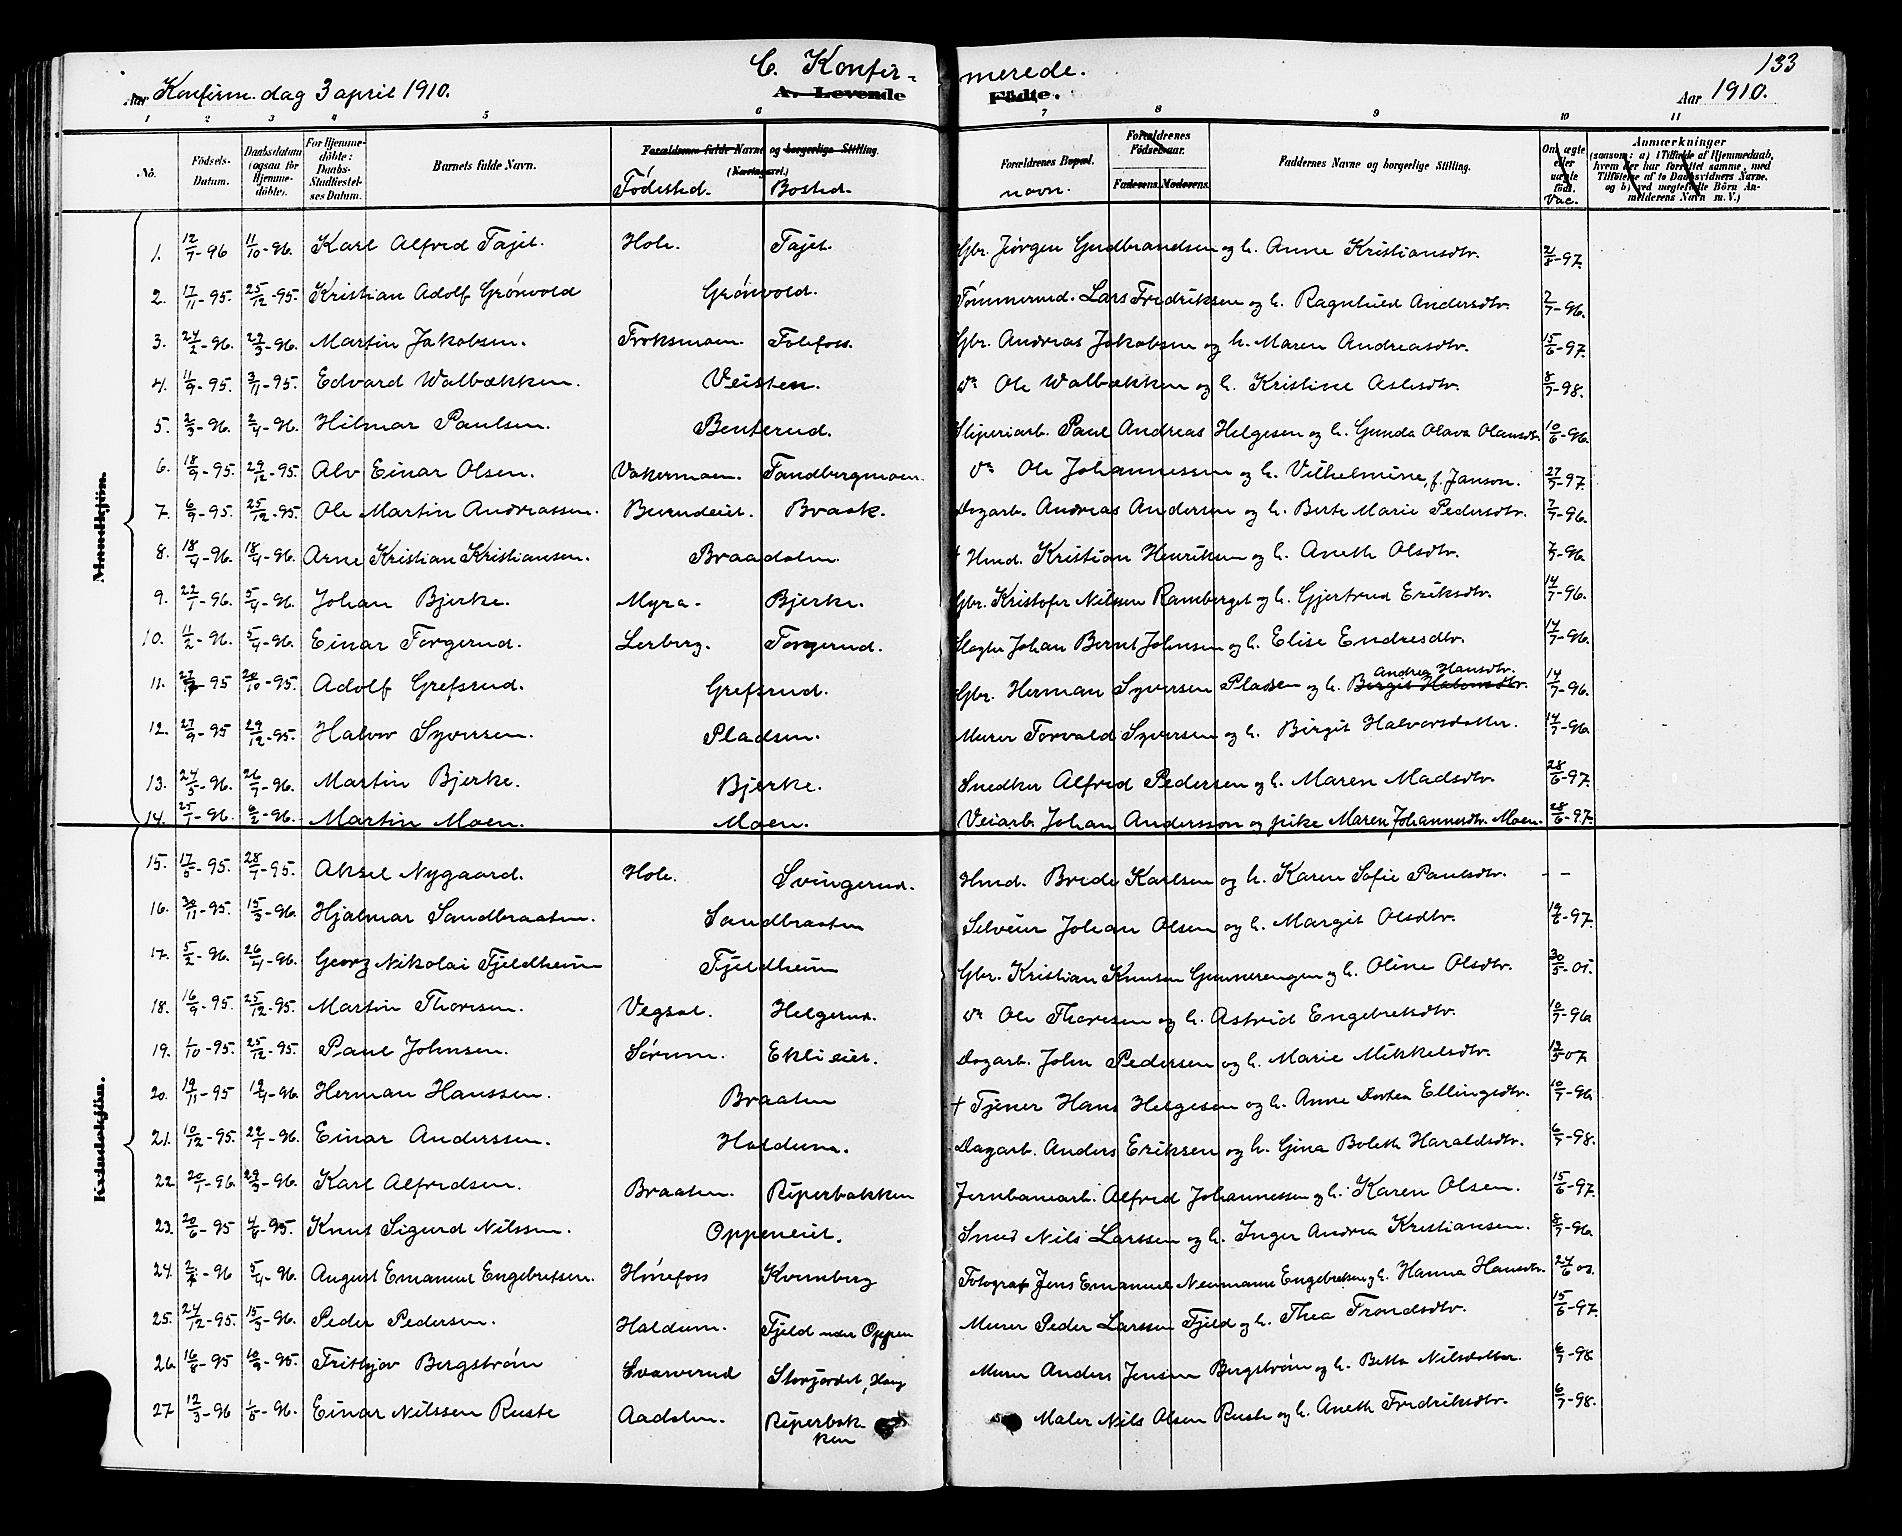 133
C. Konfir- merede.
Aar Konfirm. dag 3 april 1910. A. Levende Födte. Aar 1910.
1 2 3 4 5 6 7 8 9 10 11
No. Födsels-Datum. Daabsdatum (ogsaa for Hjemme-döbte). For Hjemme-döbte: Daabs-Stadfæstel-ses Datum. Barnets fulde Navn. Forældrenes fulde Navne og borgerlige Stilling. (Kortegaret.) Födested. Bosted. Forældrenes Bopæl. navn. Forældrenes Födselsaar. Faderens. Moderens. Faddernes Navne og borgerlige Stilling. Om ægte eller uægte født. Vac. Anmærkninger (saasom: a) i Tilfælde af Hjemmedaab, hvem der har forrettet samme, med Tilföielse af to Daabsvidners Navne, og b) ved uægtefødte Börn An-melderens Navn m. V.)
Mandkjön.
1. 12/7-96 11/10-96. Karl Alfred Tajet. Hole. Tajet. Gbr. Jörgen Gudbrandsen og h. Anne Kristiansdtr. 21/8-97.
2. 17/11-95. 25/12-95. Kristian Adolf Grönvold Grönvold. Tömmermd. Lars Fredriksen og h. Ragnhild Andersdtr. 2/7-96.
3. 24/2-96. 29/3-96. Martin Jakobsen. Froksmoen. Folefoss. Gbr. Andreas Jakobsen og h. Maren Andreasdtr. 15/6-97.
4. 11/9-95. 3/11-95. Edvard Walbækken. Veisten. do Ole Walbækken og h. Kristine Aslesdtr. 8/7-98.
5. 2/3-96. 2/4-96. Hilmar Paulsen. Benterud. Sliperiarb. Paul Andreas Helgesen og h. Gunda Olava Olausdtr. 10/6-96.
6. 18/9-95. 29/12-95. Alv Einar Olsen. Vakermoen. Tandbergmoen. do Ole Johannessen og h. Vilhelmine, f. Janson. 27/7-97.
7. 6/9-95. 25/12-95. Ole Martin Andreassen. Busundeiet. Braak. Dagarb. Andreas Andersen og h. Berte Marie Pedersdtr. 2/7-96.
8. 18/4-96. 18/4-96. Arne Kristian Kristiansen. Braadalen. † Hmd. Kristian Henriksen og h. Aneth Olsdtr. 7/7-96.
9. 22/1-96. 5/4-96. Johan Bjerke. Myra. Bjerke. Gbr. Kristofer Nilssen Ramberget og h. Gjertrud Eriksdtr. 14/7-96.
10. 11/2-96. 5/4-96. Einar Forgerud. Lerberg. Forgerud. Slagter Johan Bernt Johnsen og h. Elise Endresdtr. 14/7-96.
11. 95 20/10-95. Adolf Grefsrud. Grefsrud. Gbr. Herman Syversen Pladsen og h. Andrea Hansdtr. 14/7-96.
12. 27/9-95 29/12-95. Halvor Syversen. Pladsen. Murer Torvald Syversen og h. Birgit Halvorsdatter. 14/7-96.
13. 24/5-96. 26/7-96. Martin Bjerke. Bjerke. Snedker Alfred Pedersen og h. Maren Madsdtr. 28/6-97.
14. 25/1-96. 6/2-96. Martin Moen. Moen. Veiarb. Johan Andersson og pike Maren Johannesdtr. Moen. 28/6-97.
Kvindekjön.
15. 17/5-95. 28/7-95. Aksel Nygaard. Hole. Svingerud. Hmd. Brede Karlsen og h. Karen Sofie Paulsdtr. - -
16. 30/11-95. 15/3-96. Hjalmar Sandbraaten. Sandbraaten Selveier Johan Olsen og h. Margit Olsdtr. 19/6-97.
17. 5/2-96. 26/4-96. Georg Nikolai Fjeldheim Fjeldheim Gbr. Kristian Knutsen Gunnerengen og h. Oline Olsdtr. 30/5-01.
18. 16/9-95. 25/12-95. Martin Thoresen. Vegsal. Helgerud. do Ole Thoresen og h. Astrid Engebretsdtr. 10/7-96
19. 1/10-95. 25/12-95. Paul Johnsen. Sørum. Eklieiet. Dagarb. John Pedersen og h. Marie Mikkelsdtr. 12/5-07
20. 19/11-95 12/4-96 Herman Hanssen. Braaten † Tjener Hans Helgesen og h. Anne Dorthea Ellingsdtr. 10/7-96.
21. 10/12-95. 22/1-96. Einar Anderssen. Haldum. Dagarb. Anders Eriksen og h. Gina Boleth Haraldsdtr. 6/7-98.
22. 20/1-96. 29/3-96. Karl Alfredsen. Braaten. Riperbakken Jernbanearb. Alfred Johannessen og h. Karen Olsen. 15/6-97.
23. 20/6-95 4/8-95. Knut Sigurd Nilssen. Oppeneiet. Smed Nils Larssen og h. Inger Andrea Kristiansen. 8/7-96.
24. 96 5/4-96. August Emanuel Engebretsen. Hönefoss Kvernberg Fotograf Jens Emanuel Neumann Engebretsen og h. Hanna Hansdtr. 24/6 02.
25. 24/12-95. 15/3-96. Peder Pedersen. Haldum. Fjeld under Oppen Murer Peder Larssen Fjeld og h. Thea Trondsdtr. 15/6-97.
26. 16/8-95 10/9-95. Frithjov Bergström Svarverud Storjordet, Haug Murer Anders Jensen Bergström og h. Betta Nilsdatter. 6/7-98.
27 12/3-96 1/6-96. Einar Nilssen Ruste Aadalen. Riperbakken Maler Nils Olsen Ruste og h. Aneth Fredriksdtr. 6/7-98.